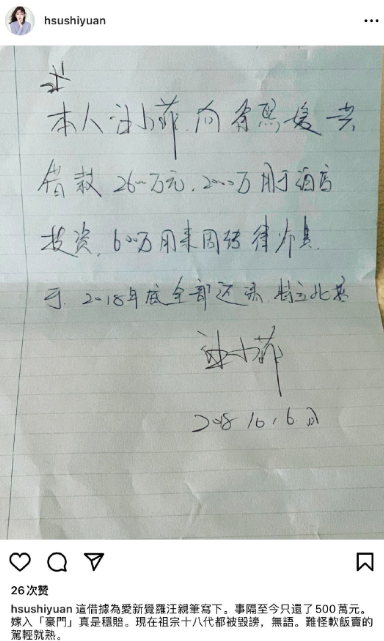 hsushiyuan
本人汪小菲.向徐熙媛共
借款2600万元.2000万用于酒店
投资.600万用来周转
于.2018年底全部还清.特立此据
汪小菲
2018 10.6日
26次赞
hsushiyuan 這借據為愛新覺羅汪親筆寫下。事隔至今只還了500萬元。
嫁入「豪門」真是穩賠。現在祖宗十八代都被毀謗，無語。難怪軟飯賣的
駕輕就熟。